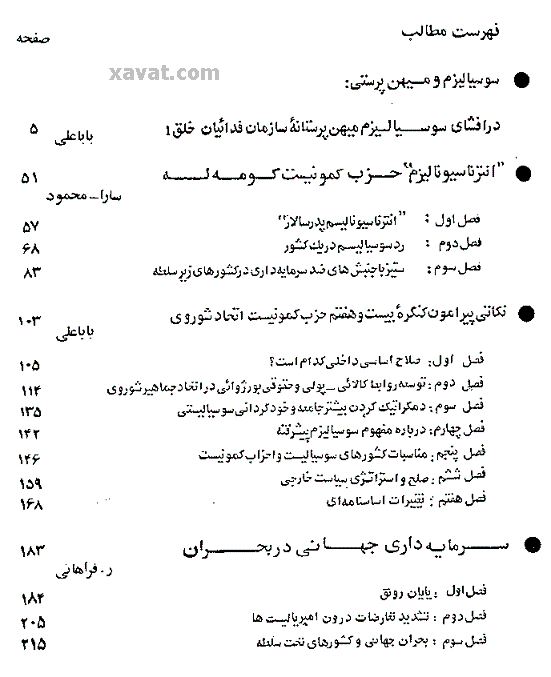 فهرست مطالب صفحه
xavat.com
سوسیالیزم و میهن پرستی:
درافشای سوسیالیزم میهن پرستانهٔ سازمان فدائیان خلق ۱ باباعلی ۵
"انترناسیونالیزم" حزب کمونیست کومه له ۵۱
سارا_ محمود
فصل اول : "انترناسیونالیسم پدرسالار" ۵۷
فصل دوم : رد سوسیالیسم دریک کشور ۶۸
فصل سوم : ستیزباجنبش های ضد سرمایه داری درکشورهای زیرسلطه ۸۳
نکاتی پیرامون کنگرهٔ بیست وهفتم حزب کمونیست اتحاد شوروی ۱۰۳
باباعلی
فصل اول: صلاح اساسی داخلی کدام است؟ ۱۰۵
فصل دوم : توسعه روابط کالائی _ پولی وحقوقی بورژوائی دراتحاد جماهیرشوروی ۱۱۴
فصل سوم : دمکراتیک کردن بیشترجامعه وخودگردانی سوسیالیستی ۱۳۵
فصل چهارم: درباره مفهوم سوسیالیزم پیشرفته ۱۴۲
فصل پنجم : مناسبات کشورهای سوسیالیست واحزاب کمونیست ۱۴۶
فصل ششم : صلح و استراتژی سیاست خارجی ۱۵۹
فصل هفتم : تغییرات اساسنامه ای ۱۶۸
سرمایه داری جهانی دربحران ۱۸۳
ر. فراهانی
فصل اول : پایان رونق ۱۸۴
فصل دوم : تشدید تعارضات درون امپریالیست ها ۲۰۵
فصل سوم : بحران جهانی و کشورهای تحت سلطه ۲۱۵